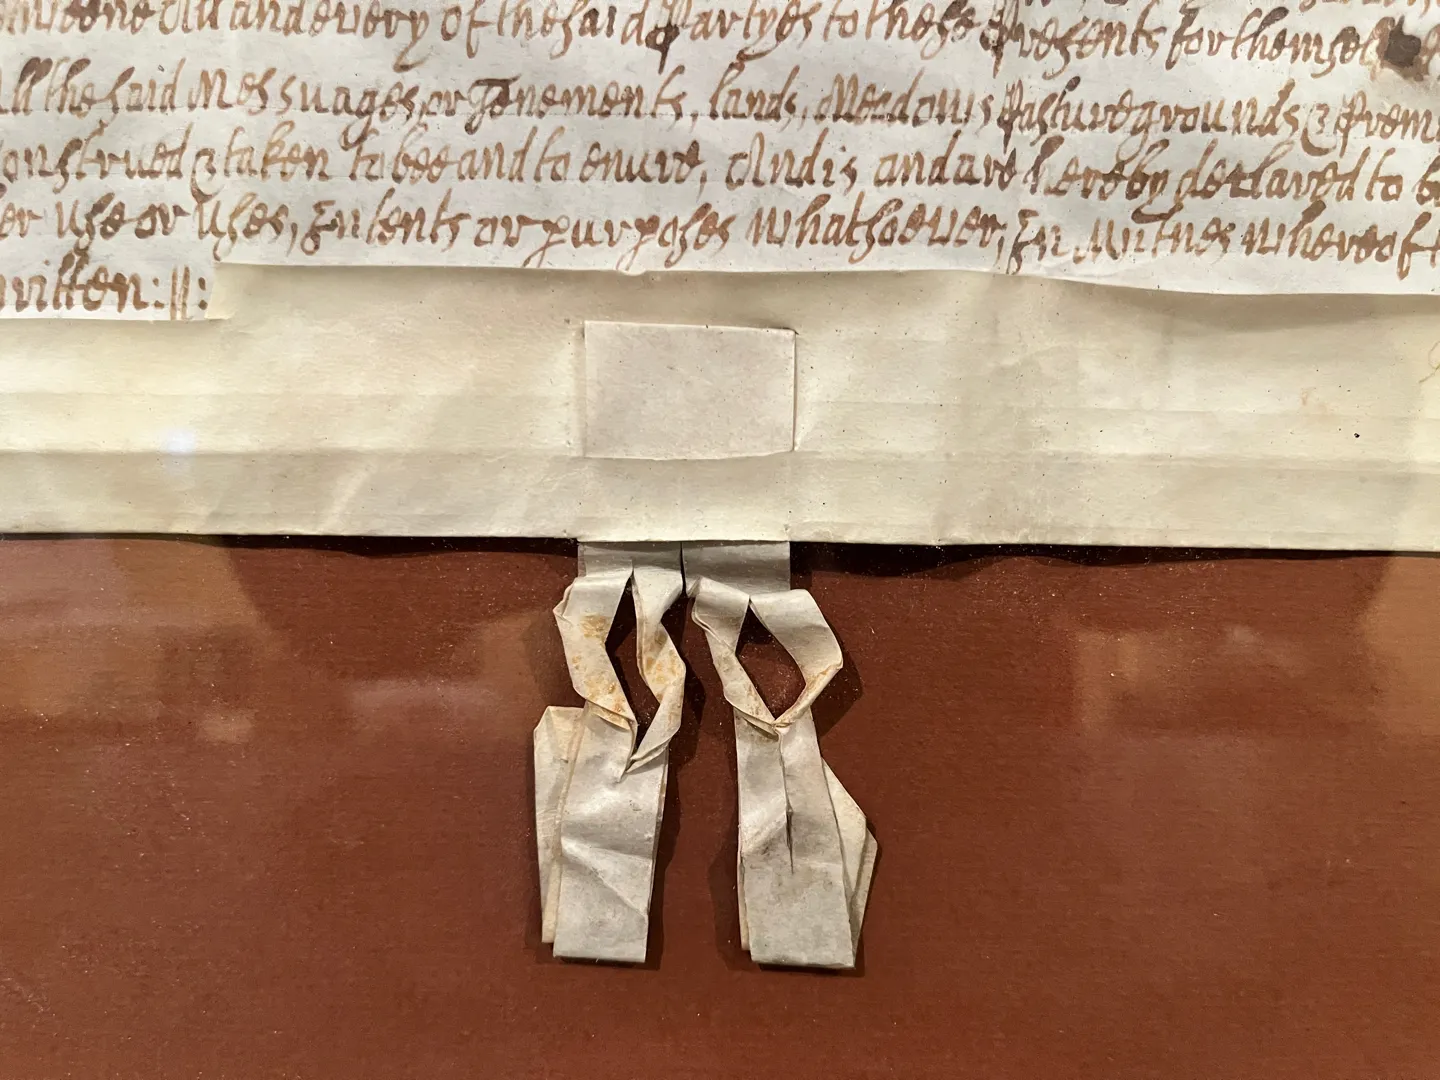 All and every of the said Partyes to these Presents for themsel
all the said Messuages or Tenements, lands, Meadows Pasture grounds & Premi
onstrued & taken to bee and to enure, And is and are hereby declared to b
er Use or Uses, Intents or purposes whatsoever, In Witnes whereof t
written:||: